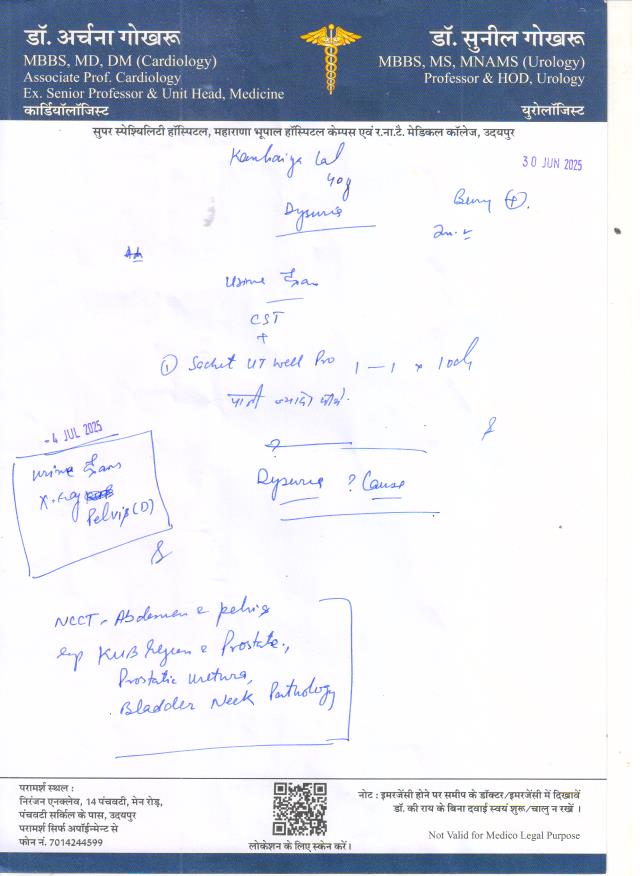 डॉ. अर्चना गोखरू
MBBS, MD, DM (Cardiology)
Associate Prof. Cardiology
Ex. Senior Professor & Unit Head, Medicine
कार्डियॉलॉजिस्ट
डॉ. सुनील गोखरू
MBBS, MS, MNAMS (Urology)
Professor & HOD, Urology
युरोलॉजिस्ट
सुपर स्पेश्यिलिटी हॉस्पिटल, महाराणा भूपाल हॉस्पिटल केम्पस एवं र.ना.टै. मेडिकल कॉलेज, उदयपुर
Kanhaiya Lal
30 JUN 2025
40y
Dysuria
Urine Exam
CST
+
① Sachet UT Well Pro 1 — 1 x 10d
पानी ज्यादा पीये.
- 4 JUL 2025
Urine Exam
X-ray
Pelvis (D)
Dysuria ? Cause
NCCT - Abdomen & pelvis
exp KUB Region & Prostate,
Prostatic uretura,
Bladder Neck Pathology
परामर्श स्थल :
निरंजन एनक्लेव, 14 पंचवटी, मेन रोड़,
पंचवटी सर्किल के पास, उदयपुर
परामर्श सिर्फ अपॉईन्मेन्ट से
फोन नं. 7014244599
लोकेशन के लिए स्केन करें।
नोट : इमरजेंसी होने पर समीप के डॉक्टर/इमरजेंसी में दिखावें
डॉ. की राय के बिना दवाई स्वयं शुरू/चालु न रखें ।
Not Valid for Medico Legal Purpose